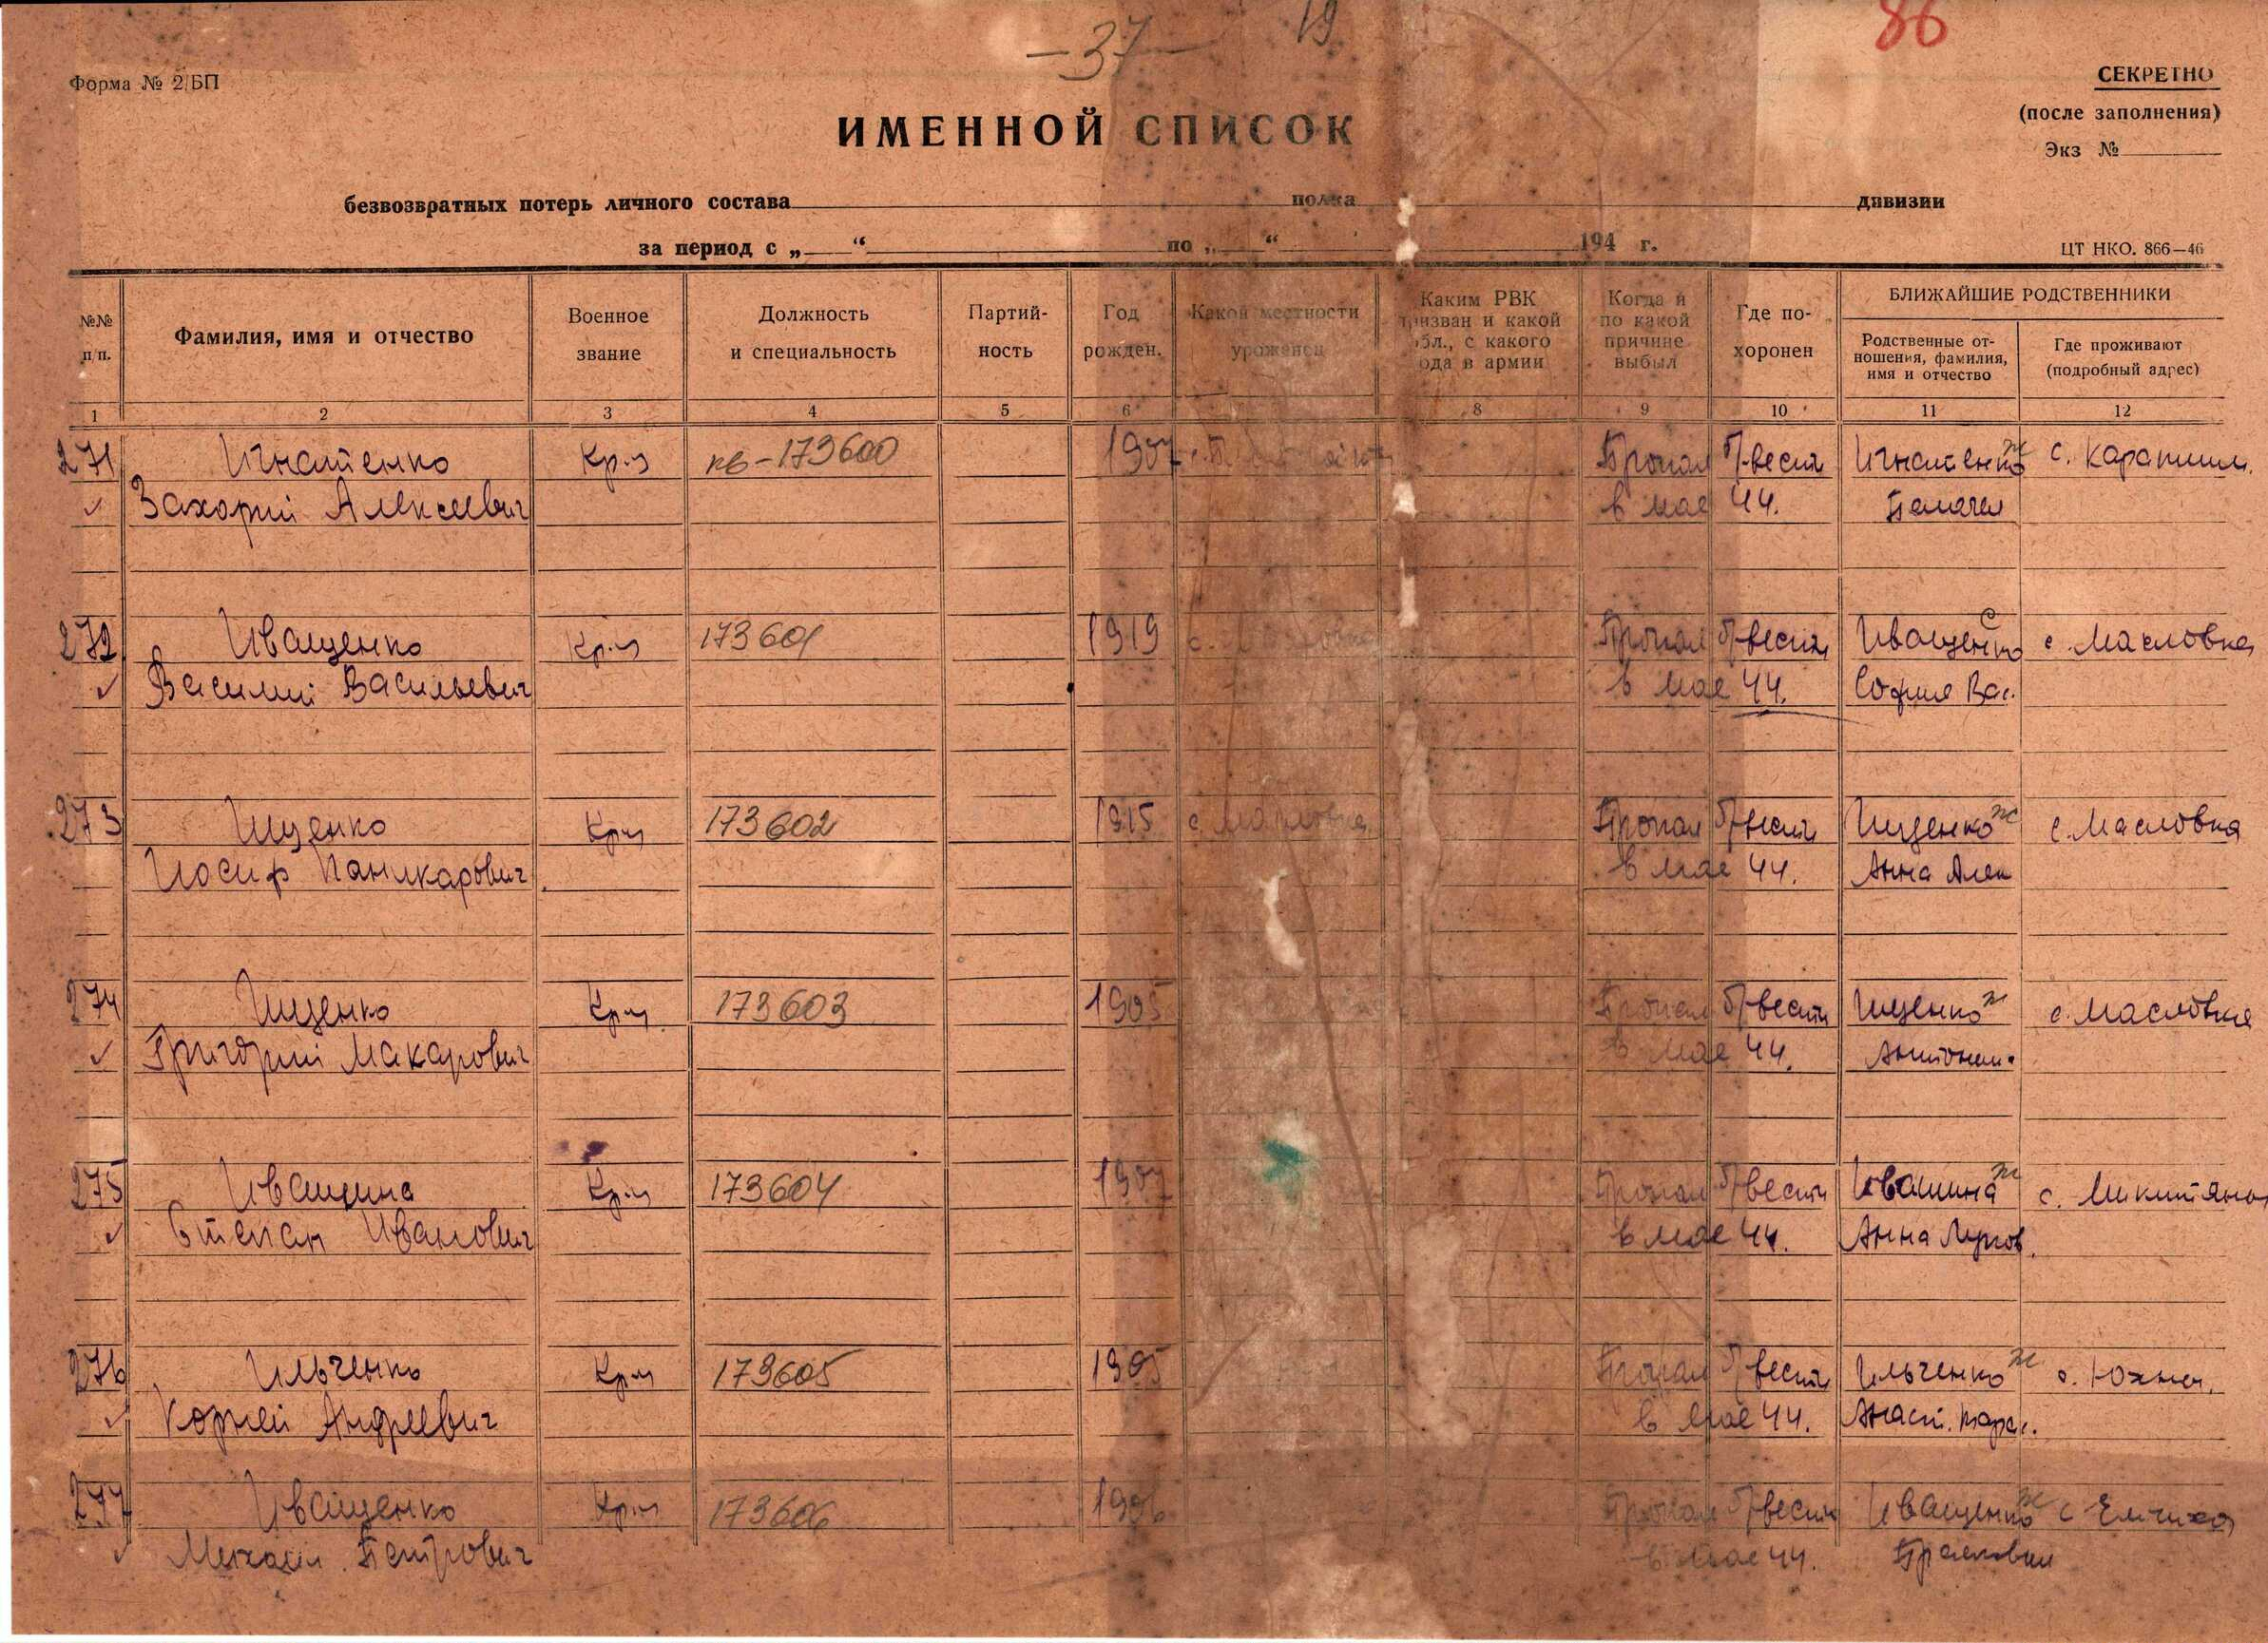 -37- 19 86
Форма № 2/БП
СЕКРЕТНО
(после заполнения)
Экз №
ИМЕННОЙ СПИСОК
безвозвратных потерь личного состава полка дивизии
за период с „ “ по „ “ 194 г.
ЦТ НКО. 866—46
№№ п/п.
Фамилия, имя и отчество
Военное звание
Должность и специальность
Партий-ность
Год рожден.
Какой местности уроженец
Каким РВК призван и какой обл., с какого года в армии
Когда и по какой причине выбыл
Где по-хоронен
БЛИЖАЙШИЕ РОДСТВЕННИКИ
Родственные от-ношения, фамилия, имя и отчество
Где проживают (подробный адрес)
1 2 3 4 5 6 8 9 10 11 12
271 Игнатенко Кр-ц кв-173600 1907 Пропал б/вести Игнатенко ж с. Карапиши.
Захорий Алексеевич в мае 44.
272 Иващенко Кр-ц 173601 1919 с. Пропал б/вести Иващенко с с. Масловка
Василий Васильевич в мае 44. София Вас.
273 Ищенко Кр-ц 173602 1915 с. Масловка Пропал б/вести Ищенко ж с. Масловка
Иосиф в мае 44. Анна Алек
274 Ищенко Кр-ц 173603 1905 Пропал б/вести Ищенко ж с. Масловка
Григорий Макарович в мае 44. Антонин.
275 Иващина Кр-ц 173604 1907 Пропал б/вести Иващина ж с. Микитяны
Степан Иванович в мае 44. Анна
276 Ильченко Кр-ц 173605 1905 Пропал б/вести Ильченко ж с.
Корней Андреевич в мае 44. Анаст. Тарас.
277 Иващенко Кр-ц 173606 1906 Пропал б/вести Иващенко ж с Емчиха
Михаил Петрович в мае 44.